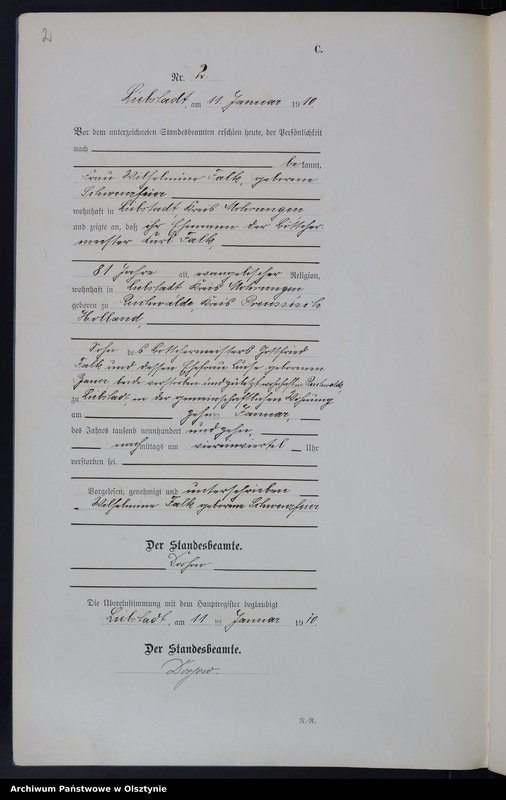 2
C.
Nr. 2
Liebstadt, am 11. Januar 1910.
Vor dem unterzeichneten Standesbeamten erschien heute, der Persönlichkeit
nach
be kannt,
Frau Wilhelmine Falk, geborene
wohnhaft in Liebstadt, Kreis Mohrungen
und zeigte an, daß ihr Ehemann der Böttcher-
meister Karl Falk,
81 Jahre alt, evangelischer Religion,
wohnhaft in Liebstadt Kreis Mohrungen
geboren zu Reichwalde, Kreis Preussisch
Holland,
Sohn des Böttchermeisters Gottfried
Falk und dessen Ehefrau geborenen
beide verstorben und zuletzt wohnhaft in Reichwalde,
zu Liebstadt in der gemeinschaftlichen Wohnung
am zehnten Januar,
des Jahres tausend neunhundert und zehn,
nachmittags um viereinviertel Uhr
verstorben sei.
Vorgelesen, genehmigt und unterschrieben
Wilhelmine Falk geborene
Der Standesbeamte.
Die Übereinstimmung mit dem Hauptregister beglaubigt
Liebstadt, am 11 ten Januar 1910.
Der Standesbeamte.
N.-R.
Archiwum Państwowe w Olsztynie